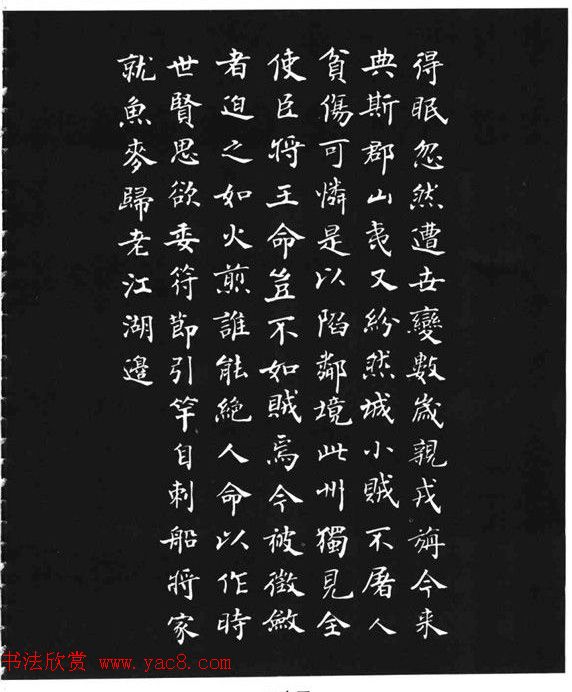 得眠忽然遭世變數歲親戎旃今来
典斯郡山夷又紛然城小賊不屠人
貧傷可憐是以陷鄰境此州獨見全
使臣將王命豈不如賊焉今被徵斂
者迫之如火煎誰能絕人命以作時
世賢思欲委符節引竿自刺船將家
就魚麥歸老江湖邊
书法欣赏 www.yac8.com